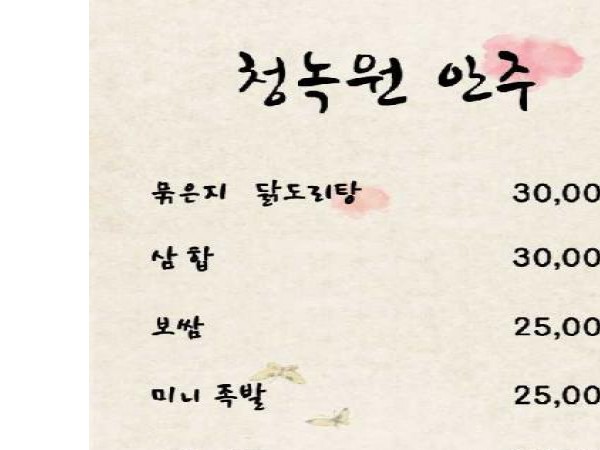 청녹원 안주
묵은지 닭도리탕 30,00
삼합 30,00
보쌈 25,00
미니 족발 25,00